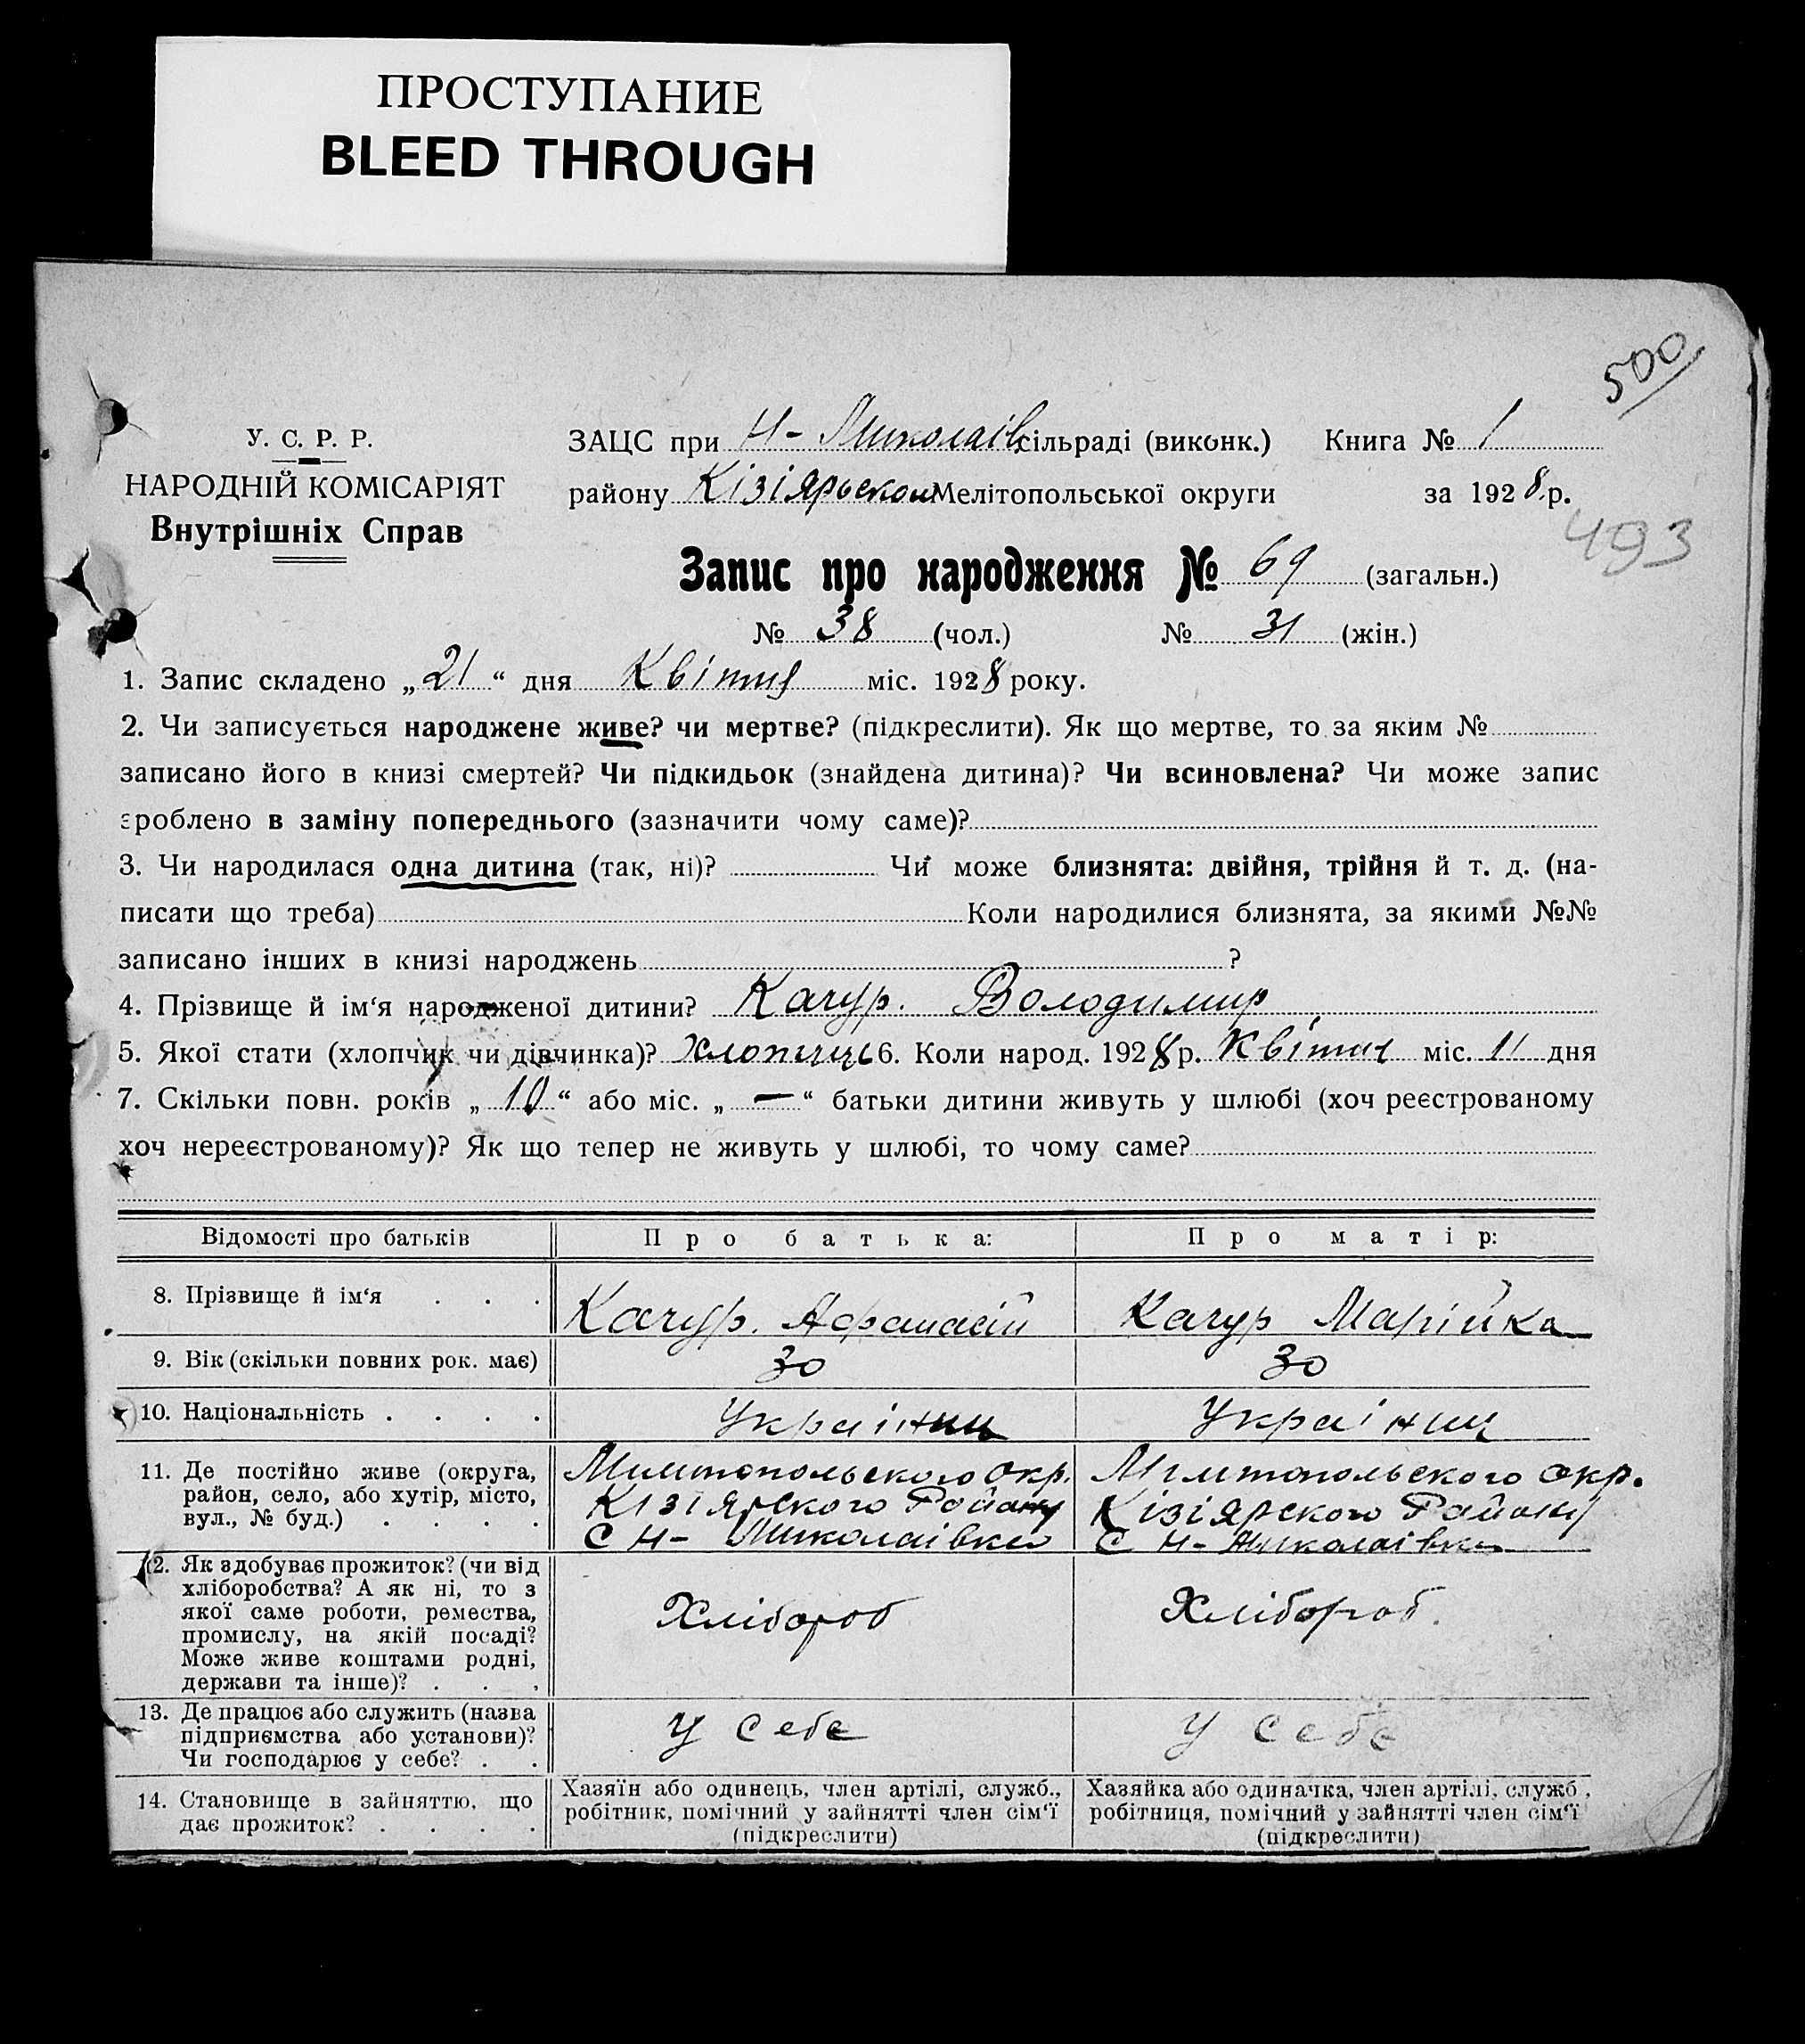 ПРОСТУПАНИЕ
BLEED THROUGH
500
У. С. Р. Р.
НАРОДНІЙ КОМІСАРІЯТ
Внутрішніх Справ
ЗАЦС при Н-Миколаїв сільраді (виконк.) Книга № 1
району Кізіярьском Мелітопольської округи за 1928 р.
493
Запис про народження № 69 (загальн.)
№ 38 (чол.) № 31 (жін.)
1. Запис складено „21“ дня Квітня міс. 1928 року.
2. Чи записується народжене живе? чи мертве? (підкреслити). Як що мертве, то за яким №
записано його в книзі смертей? Чи підкидьок (знайдена дитина)? Чи всиновлена? Чи може запис
зроблено в заміну попереднього (зазначити чому саме)?
3. Чи народилася одна дитина (так, ні)? Чи може близнята: двійня, трійня й т. д. (на-
писати що треба) Коли народилися близнята, за якими №№
записано інших в книзі народжень ?
4. Прізвище й ім‘я народженої дитини? Качур. Володимир
5. Якої стати (хлопчик чи дівчинка)? хлопчиць 6. Коли народ. 1928 р. Квітня міс. 11 дня
7. Скільки повн. років „10“ або міс. „—“ батьки дитини живуть у шлюбі (хоч реєстрованому
хоч нереєстрованому)? Як що тепер не живуть у шлюбі, то чому саме?
Відомості про батьків Про батька: Про матір:
8. Прізвище й ім‘я . . . Качур. Афанасій Качур Марійка
9. Вік (скільки повних рок. має) 30 30
10. Національність . . . . Українц Українц
11. Де постійно живе (округа, район, село, або хутір, місто, вул., № буд.) . . . .
Милтопольского окр. Мелтопольского окр.
Кізіярского Району Кізіярского Району
С Н- Миколаівка С Н- Миколаівка
12. Як здобуває прожиток? (чи від
хліборобства? А як ні, то з
якої саме роботи, ремества,
промислу, на якій посаді?
Може живе коштами родні,
держави та інше)? . . .
Хлібороб Хлібороб.
13. Де працює або служить (назва
підприємства або установи)?
Чи господарює у себе? . .
У себе У себе
14. Становище в зайняттю, що
дає прожиток? . . . .
Хазяїн або одинець, член артілі, служб.,
робітник, помічний у зайнятті член сім‘ї
(підкреслити)
Хазяйка або одиначка, член артілі, служб.,
робітниця, помічний у зайнятті член сім‘ї
(підкреслити)